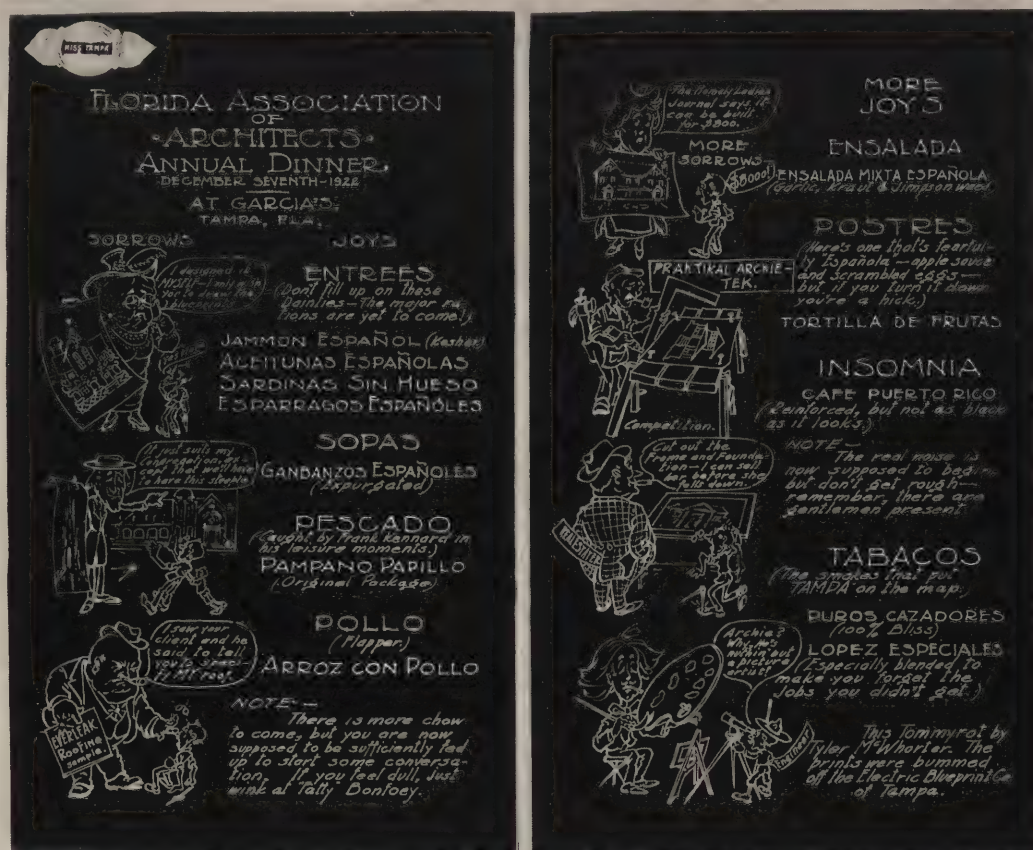 MISS TAMPA
FLORIDA ASSOCIATION
OF
·ARCHITECTS·
ANNUAL DINNER,
DECEMBER SEVENTH-1922
AT GARCIA'S:
TAMPA, FLA.
SORROWS
JOYS
I designed it
MYSELF-I only
to draw the
ENTREES
(Don't fill up on these
Dainties-The major ra-
tions are yet to come!)
JAMMON ESPAÑOL (Kosher)
ACEITUNAS ESPAÑOLAS
SARDINAS SIN HUESO
ESPARRAGOS ESPAÑOLES
SOPAS
GANBANZOS ESPAÑOLES
(Expurgated)
It just suits my
congregation, ex-
cept that we'll have
to have this steeple
PESCADO
(Caught by Frank Kennard in
his leisure moments.)
PAMPANO PAPILLO
(Original Package)
POLLO
(Flapper)
ARROZ CON POLLO
I saw your
client and he
said to tell
you to speci-
fy MY roof.
EVERLEAK
ROOFING
sample.
NOTE:-
There is more chow
to come, but you are now
supposed to be sufficiently fed
up to start some conversa-
tion. If you feel dull, just
wink at "Tatty" Bonfoey.
The Homely Ladies
Journal says it
can be built
for $800.
MORE
SORROWS
$8000!
MORE
JOYS
ENSALADA
ENSALADA MIXTA ESPAÑOLA
(Garlic, Kraut & Jimpson weed)
POSTRES
(Here's one that's fearful-
ly Española - apple sauce
and scrambled eggs -
but if you turn it down
you're a hick.)
TORTILLA DE FRUTAS
PRAKTIKAL ARCHIE-
TEK.
Competition.
INSOMNIA
CAFE PUERTO RICO
(Reinforced, but not as black
as it looks.)
NOTE-
The real noise is
now supposed to begin
but don't get rough-
remember, there are
gentlemen present
Cut out the
Frame and Founda-
tion-I can sell
her before she
falls down.
REAL ESTATE
TABACOS
(The smokes that put
TAMPA on the map.)
PUROS CAZADORES
(100% Bliss)
LOPEZ ESPECIALES
(Especially blended to
make you forget the
Jobs you didn't get.)
Archie?
Why he's
nothin but
a picture
artist!
Engineer
This Tommyrot by
Tyler McWhorter. The
prints were bummed
off the Electric Blueprint Co
of Tampa.